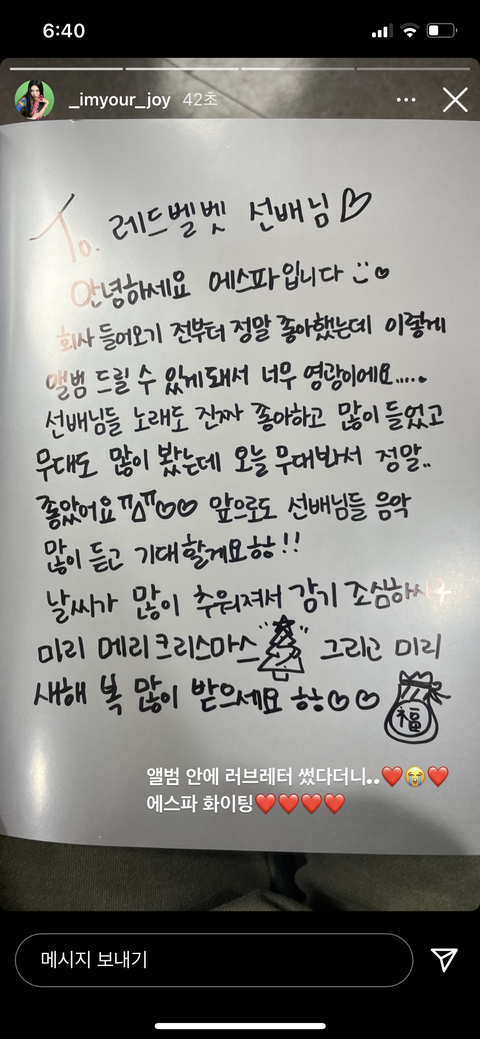 6:40
_imyour_joy 42초
To. 레드벨벳 선배님♡
안녕하세요 에스파입니다
회사 들어오기 전부터 정말 좋아했는데 이렇게
앨범 드릴 수 있게돼서 너무 영광이에요.....
선배님들 노래도 진짜 좋아하고 많이 들었고
무대도 많이 봤는데 오늘 무대봐서 정말..
좋았어요ㅠㅠ♡♡ 앞으로도 선배님들 음악
많이 듣고 기대할게요ㅎㅎ!!
날씨가 많이 추워져서 감기 조심하시구
미리 메리크리스마스 그리고 미리
새해 복 많이 받으세요 ㅎㅎ♡♡
福
앨범 안에 러브레터 썼다더니..❤️😭❤️
에스파 화이팅❤️❤️❤️❤️
메시지 보내기